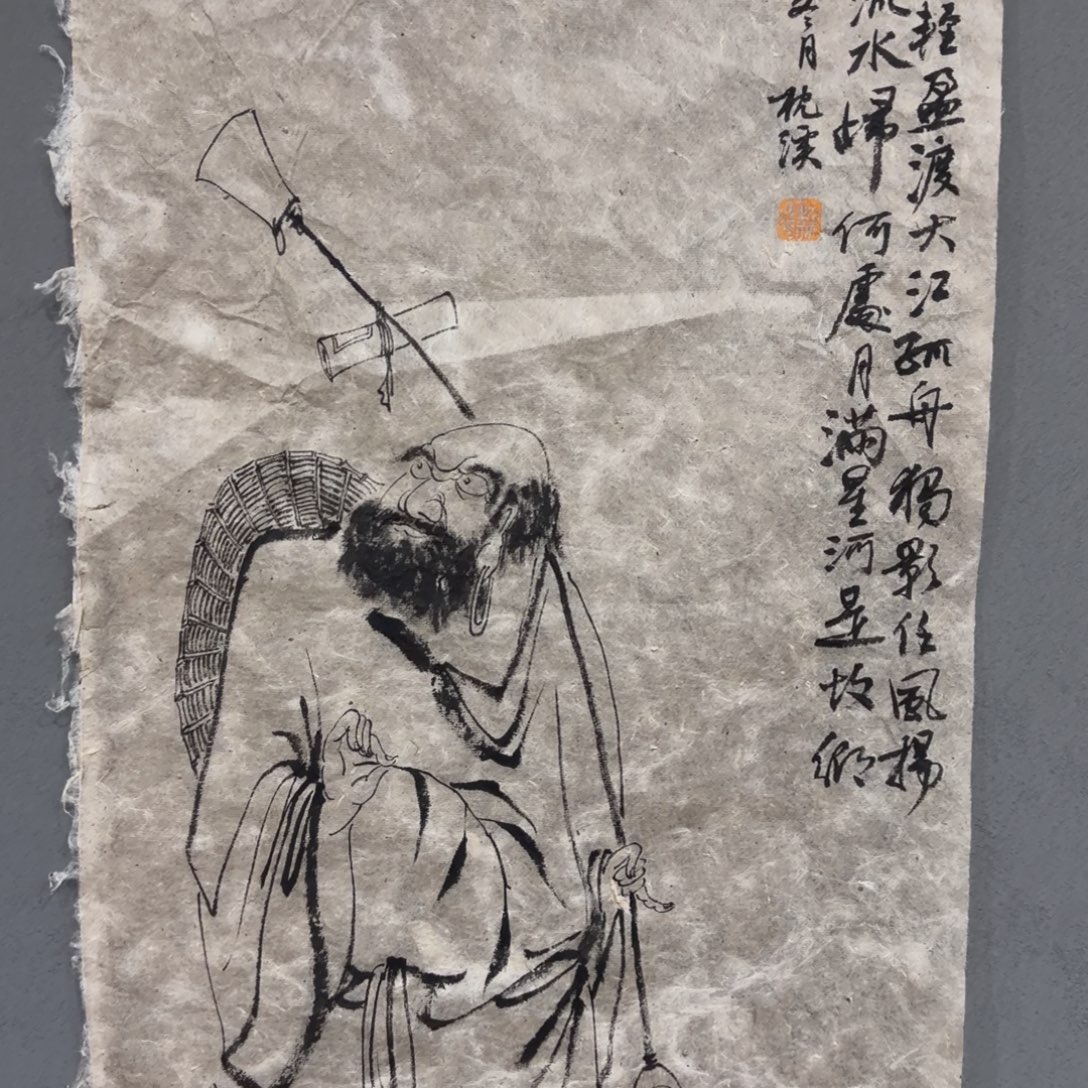 輕盈渡大江孤舟獨影任風揚
流水歸何處月滿星河是故鄉
冬月枕溪